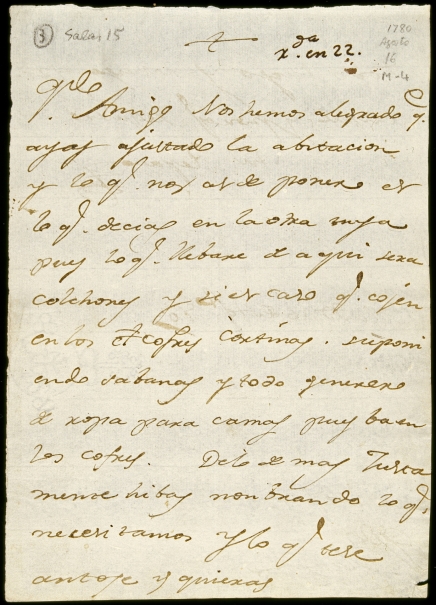 3 Sala, 15
1780
Agosto
16
M-4
x.da en 22.
Qdo
Amigo Nos hemos alegrado q.e
ayas ajustado la abitacion
y lo q.e nos as de poner es
lo q.e decias en la otra tuya
pues lo q.e llebare de aqui sera
colchones y si es caso q.e cojen
en los cofres cortinas. suponi
endo sabanas y todo generero
de ropa para camas pues ba en
los cofres. De lo de mas Justa
mente hibas nonbrando lo q.e
necesitamos y lo q.e se te
antoje y quieras